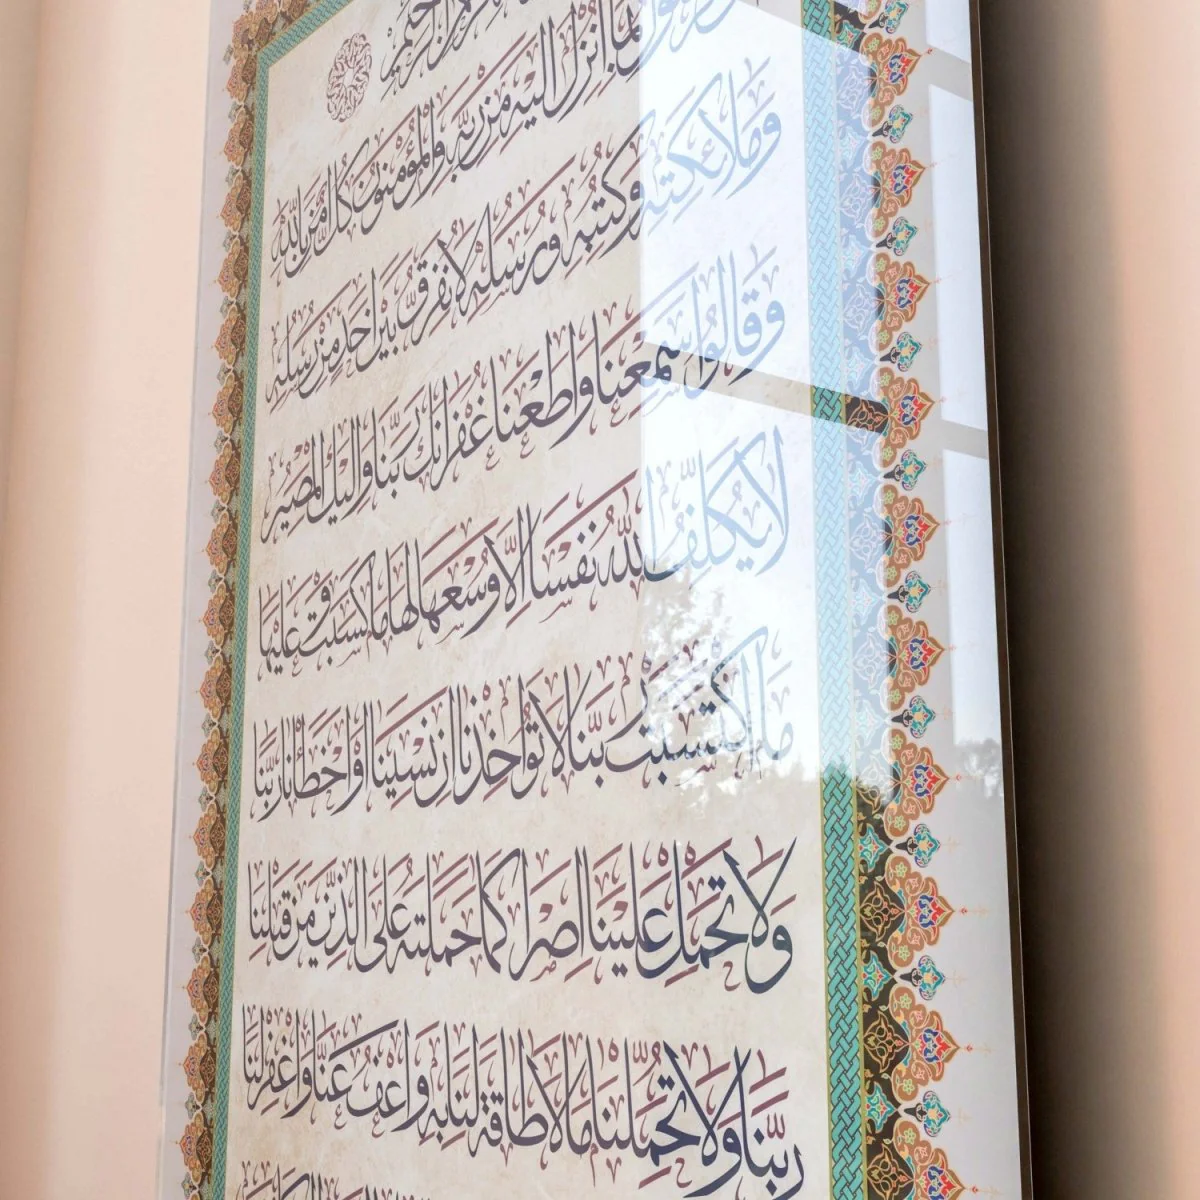 الرحيم
بما أنزل إليه من ربه والمؤمنون كل آمن بالله
وملائكته وكتبه ورسله لا نفرق بين أحد من رسله
وقالوا سمعنا وأطعنا غفرانك ربنا وإليك المصير
لا يكلف الله نفسا إلا وسعها لها ما كسبت وعليها
ما اكتسبت ربنا لا تؤاخذنا إن نسينا أو أخطأنا ربنا
ولا تحمل علينا إصرا كما حملته على الذين من قبلنا
ربنا ولا تحملنا ما لا طاقة لنا به واعف عنا واغفر لنا